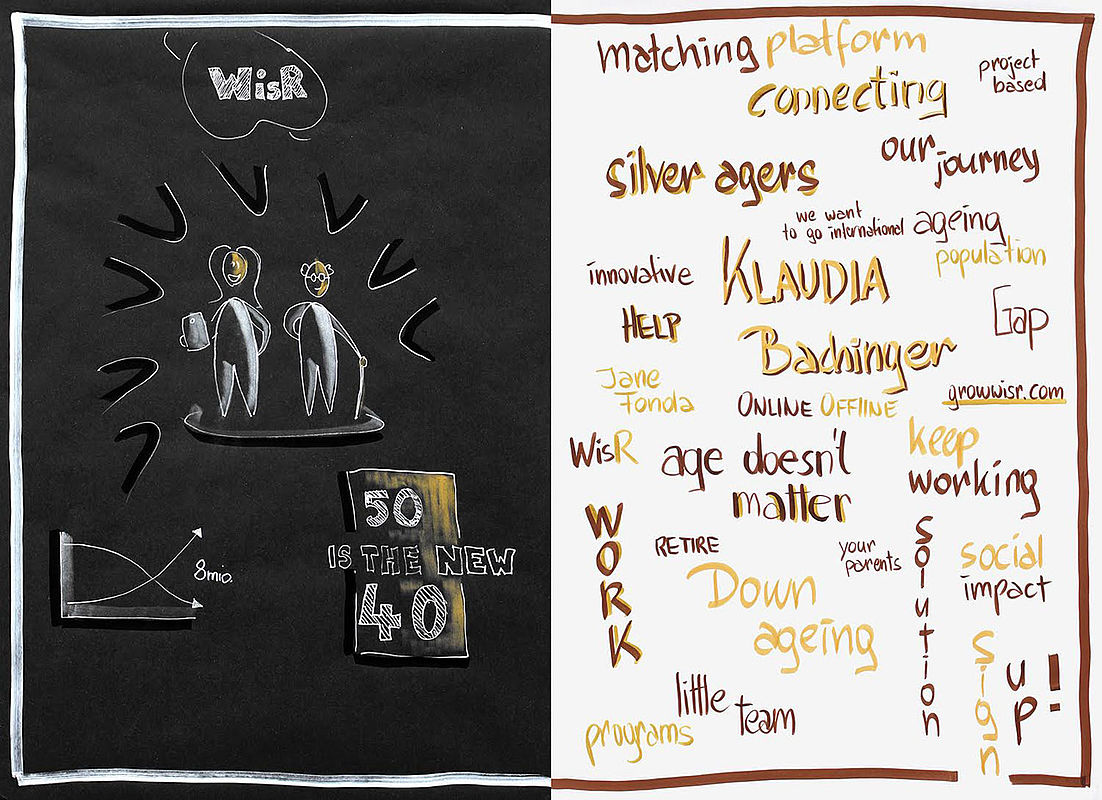 WisR
8mio.
50
IS THE NEW
40
matching platform
connecting
project
based
our journey
silver agers
we want
to go international
ageing
population
innovative
KLAUDIA
Bachinger
HELP
Gap
Jane
Fonda
ONLINE OFFLINE
growwisr.com
WisR
age doesn't
matter
keep
working
WORK
RETIRE
your
parents
solution
social
impact
Down
ageing
sign
up!
little
team
programs